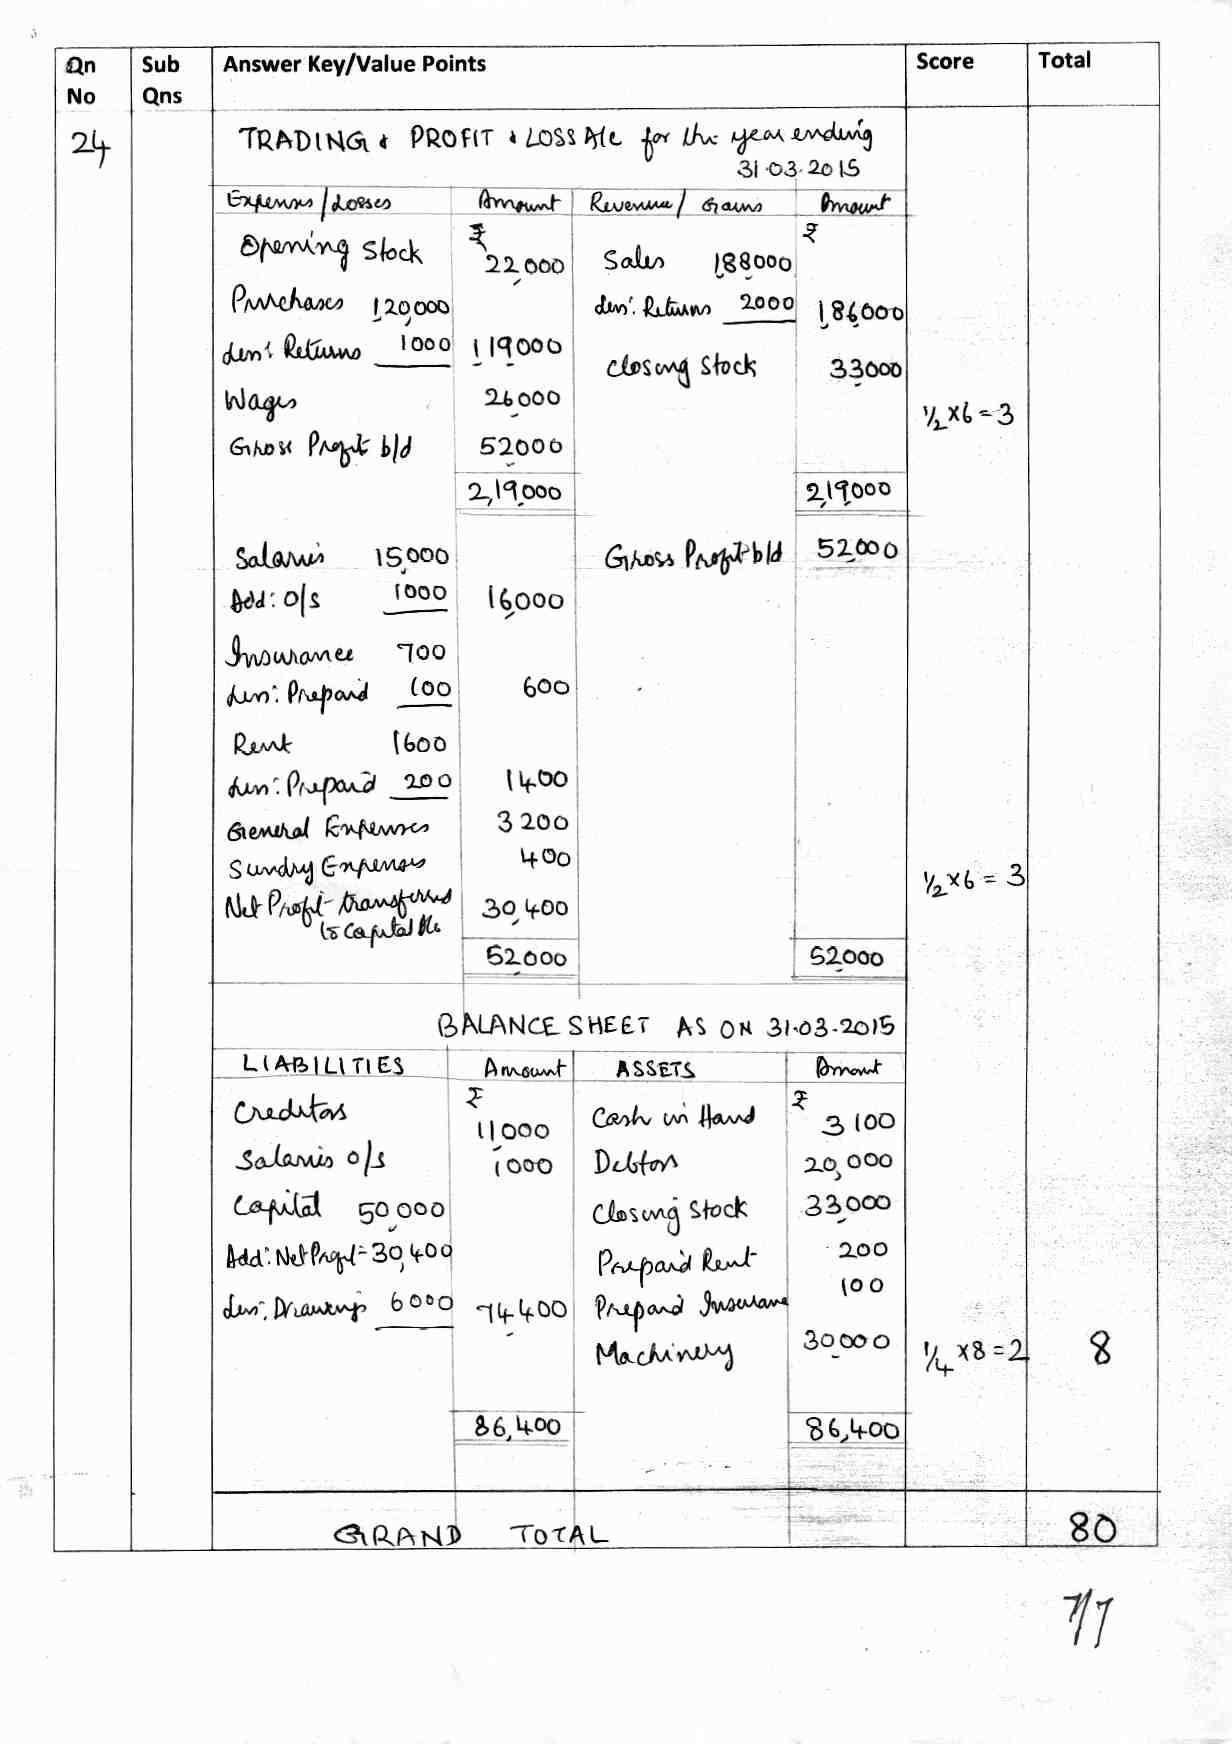 Qn No Sub Qns Answer Key/Value Points Score Total
24 TRADING & PROFIT & LOSS A/c for the year ending
31.03.2015
Expenses/Losses Amount Revenue/Gains Amount
₹ ₹
Opening Stock 22,000 Sales 188000
Purchases 1,20,000 Less: Returns 2000 1,86,000
Less: Returns 1000 1,19000 Closing Stock 33000
Wages 26000
Gross Profit b/d 52000 ½×6=3
2,19,000 2,19,000
Salaries 15,000 Gross Profit b/d 52,000
Add: O/s 1000 16,000
Insurance 700
Less: Prepaid 100 600
Rent 1600
Less: Prepaid 200 1400
General Expenses 3200
Sundry Expenses 400
Net Profit transferred 30,400 ½×6=3
to Capital A/c
52000 52000
BALANCE SHEET AS ON 31.03.2015
LIABILITIES Amount ASSETS Amount
₹ ₹
Creditors 11000 Cash in Hand 3100
Salaries o/s 1000 Debtors 20,000
Capital 50,000 Closing Stock 33,000
Add: Net Profit 30,400 Prepaid Rent 200
Less: Drawings 6000 74,400 Prepaid Insurance 100
Machinery 30000 ¼×8=2 8
86,400 86,400
GRAND TOTAL 80
7/7